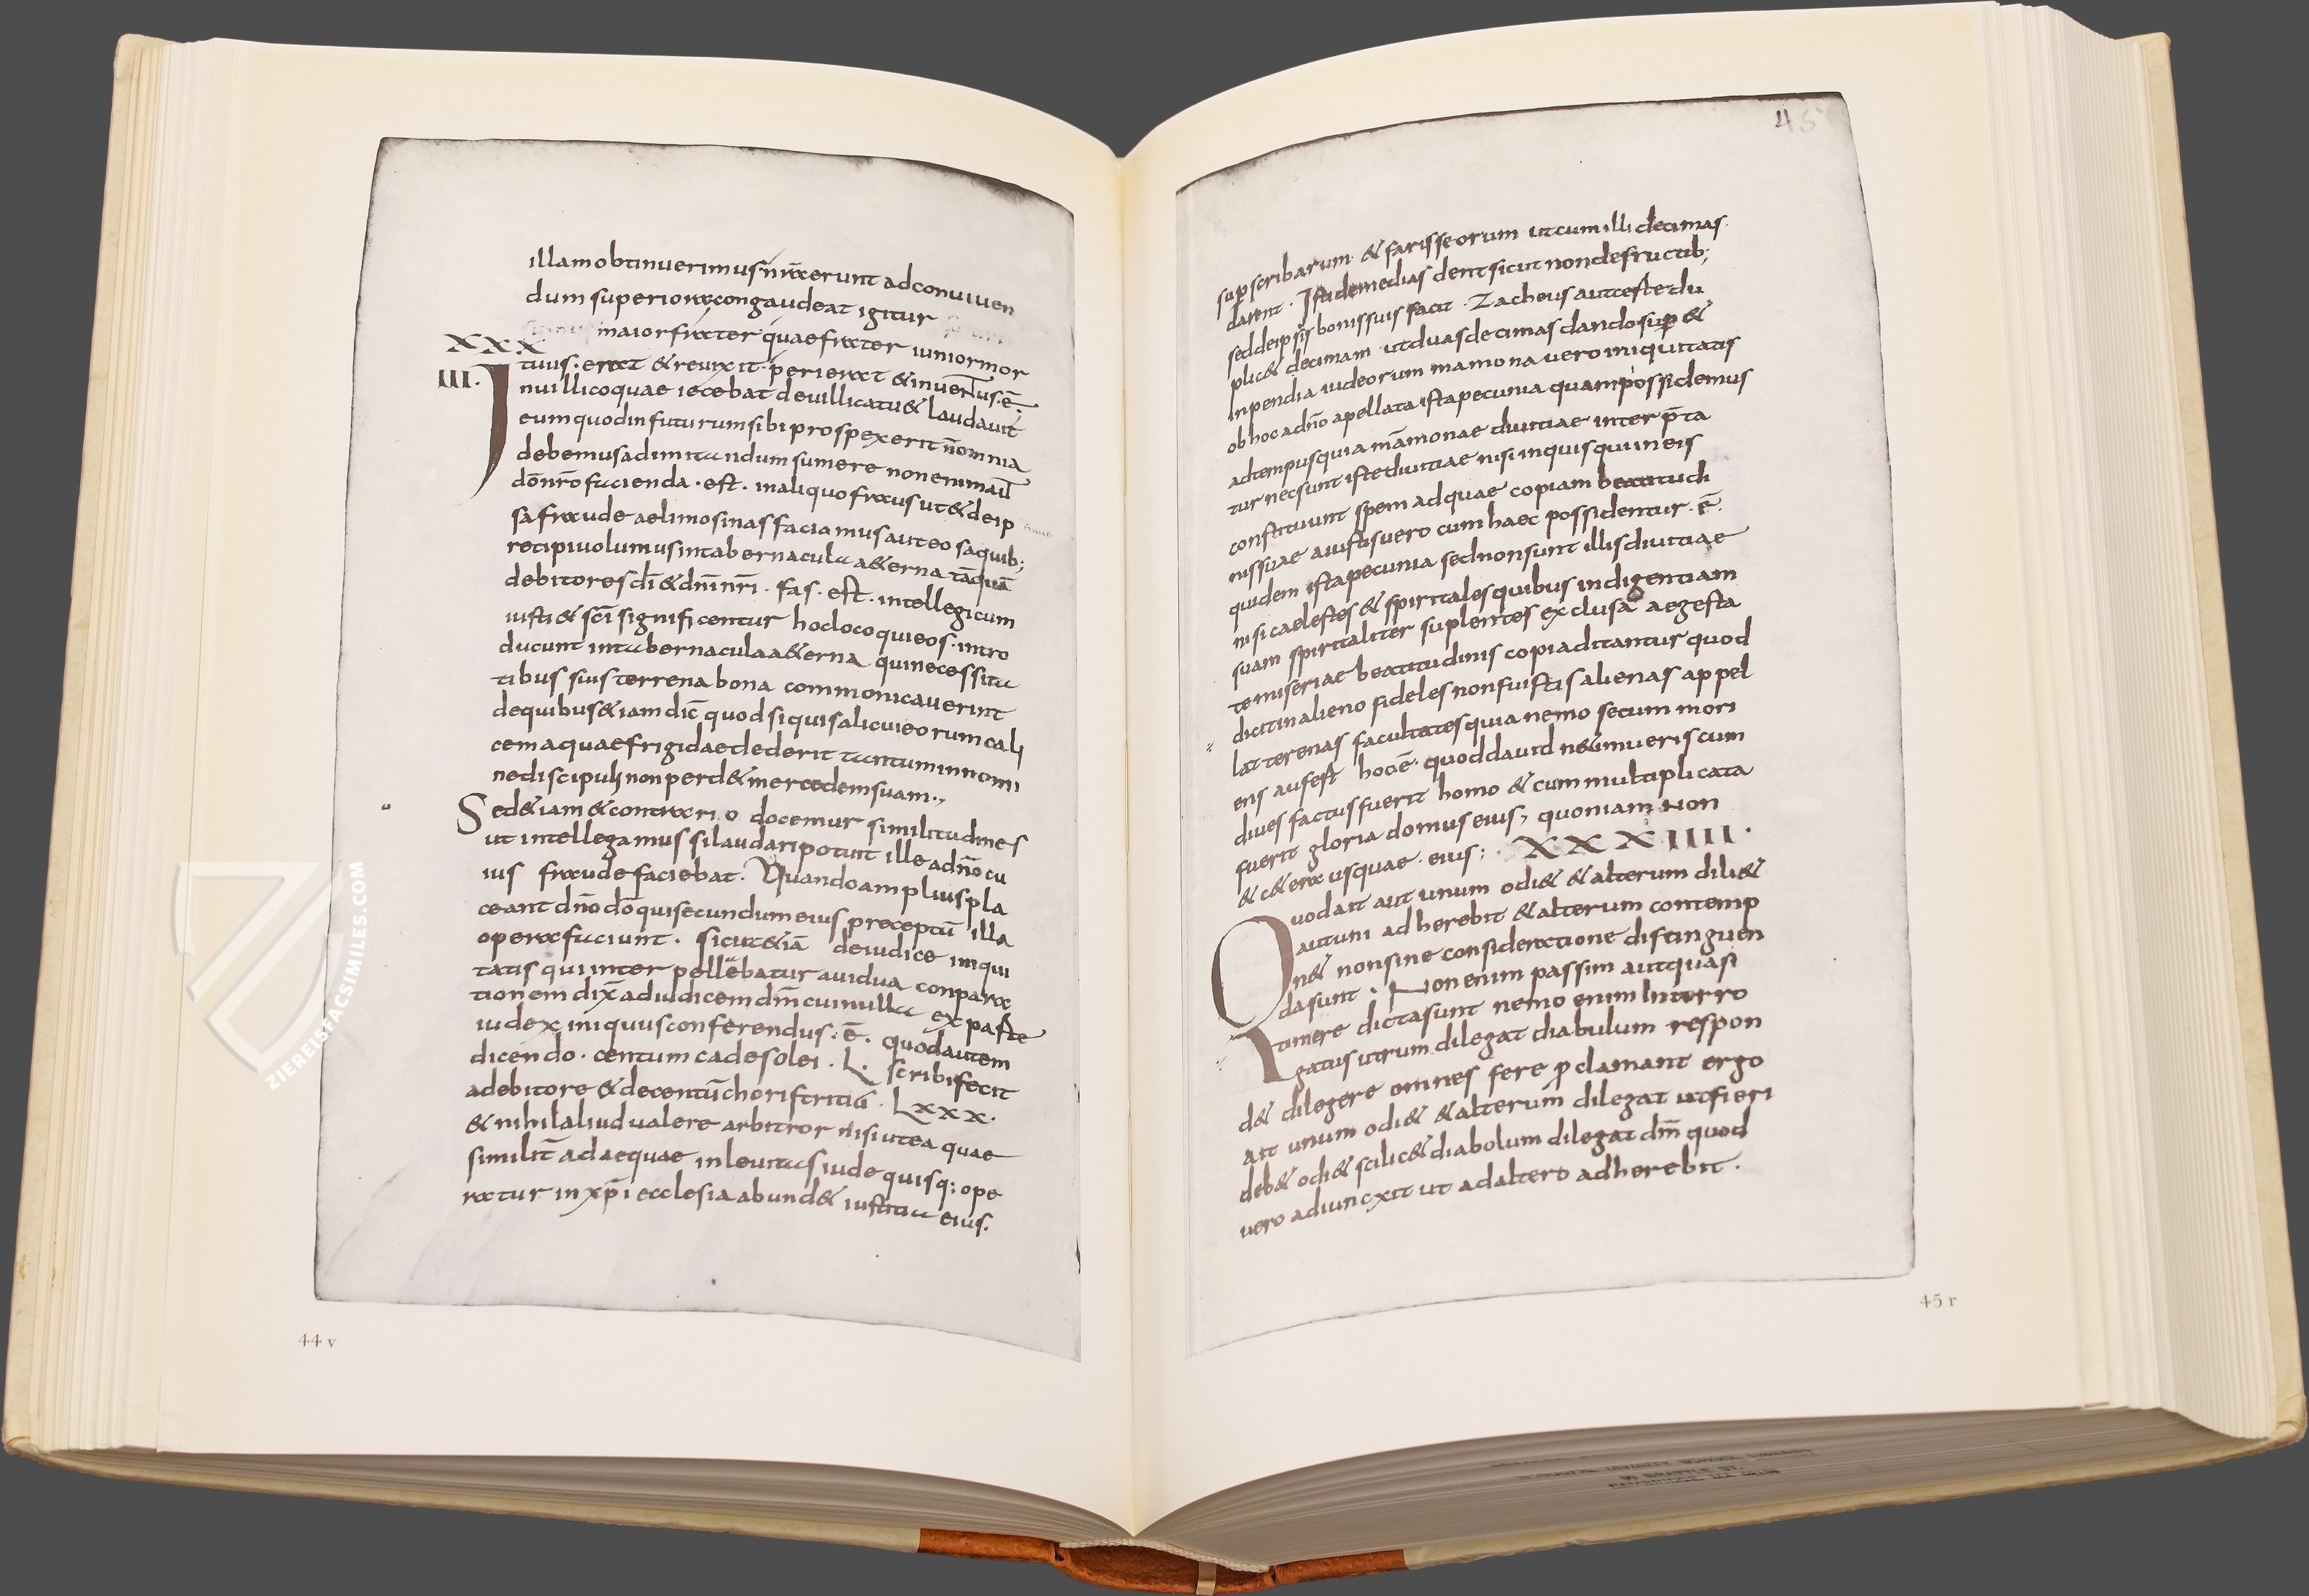 illam obtinuerimus
dum superiora congaudeat igitur
maior frater quae frater iunior mor
XXX
tuus: erat & reuixit perierat & inuentus·ē·
III.
In uillico quae iecebat de uillicatu & laudauit
eum quod in futurum sibi prospexerit
debemus ad imitandum sumere non enim aut
dōnrō facienda · est · in aliquo fraus ut & de ip
sa fraude aelimosinas faciamus aut eos a quib;
recipi uolumus in tabernacula a&erna tāquā
debitores dī & dnī nrī · fas · est · intellegi cum
iusti & scī significentur hoc loco qui eos · intro
ducunt in tabernacula a&erna qui necessita
tibus suis terrena bona commonicauerint
de quibus & iam dic quod si quis alicui eorum cali
cem aquae frigidae dederit tantum in nomi
ne discipuli non perd& mercedem suam·,
Sed & iam & contrario docemur similitudines
ut intellegamus si laudari potuit ille a dnō cu
ius fraude faciebat. Quando amplius pla
ceant dnō dō qui secundum eius preceptū illa
opera faciunt · sicut & iā de iudice iniqui
tatis qui interpellebatur a uidua conpara
tionem dix ad iudicem dm cui nulla ex paste
iudex iniquus conferendus:ē· quod autem
dicendo · centum cades olei · L· scribi fecit
a debitore & de centū choris tritici · Lxxx·
& nihil aliud ualere arbitror nisi ut ea quae
similit ad aequae in leuitas iude quisq; ope
ratur in xpī ecclesia abund& iustitia eius.
44 v
45
sup scribarum & farisseorum ut cum illi decimas
darent · Isti demedias dent sicut non de fructib;
sed de ipsis bonis suis facit · Zacheus aut
plic& decimam ut duas decimas dando sup &
inpendia iudeorum mamona uero iniquitatis
ob hoc ad nō apellata ista pecunia quam possidemus
ad tempus quia māmonae diuitiae inter p̄ta
tur nec sunt iste diuitiae nisi iniquis qui in eis
constituunt spem adquae copiam beatitudi
nis suae a iustis uero cum haec possidentur · ē·
quidem ista pecunia sed non sunt illis diuitiae
nisi caelestes & spiritales quibus indigentiam
suam spiritaliter suplentes exclusa aegesta
te miseriae beatitudinis copia ditantur quod
dicit in alieno fideles non fuistis alienas appel
lat terenas facultates quia nemo secum mori
ens aufest hoc ē· quod dauid
diues factus fuerit homo & cum multiplicata
fuerit gloria domus eius, quoniam non
& c&era usquae eius; XXXIIII·
Quod ait aut unum odi& & alterum dili&
aut uni adherebit & alterum contemp
n& non sine consideratione distinguen
da sunt · Non enim passim aut quasi
timere dicta sunt nemo enim interro
gatus utrum dilegat diabulum respon
d& dilegere omnes fere p clamant ergo
ait unum odi& & alterum dilegat ut fieri
deb& odi& scilic& diabolum dilegat dm quod
uero adiuncxit ut ad altero adherebit ·
45 r
ZIEREISFACSIMILES.COM